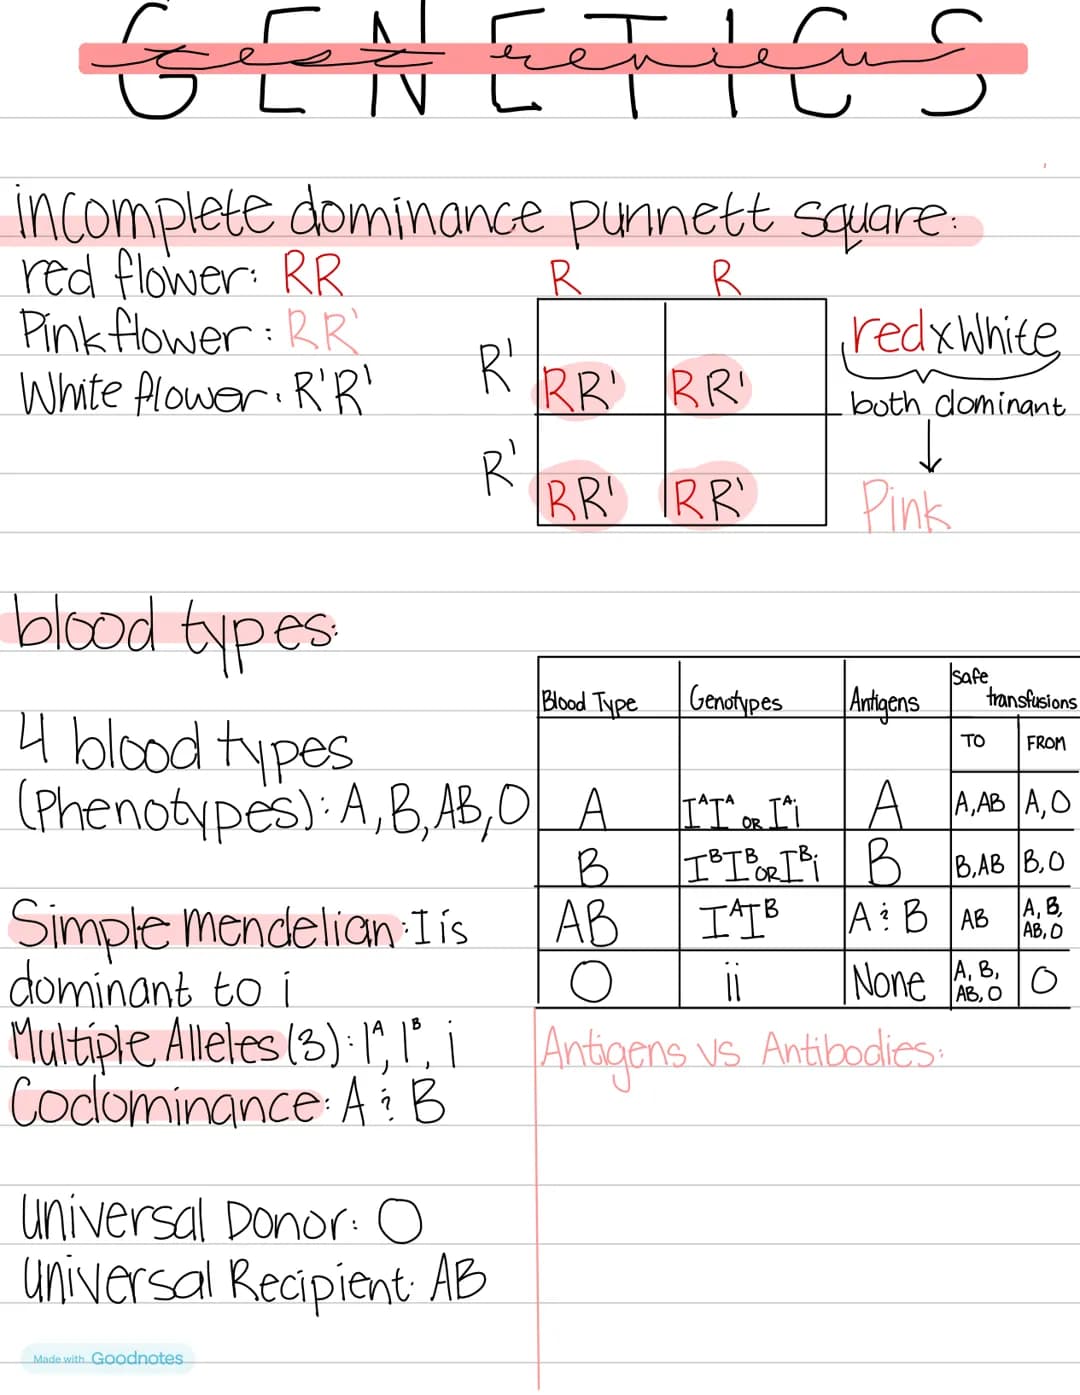 GENETICS
test review
incomplete dominance punnett square:
red flower: RR
Pink flower: RR'
White flower: R'R'
R R
R' RR' RR'
R' RR' RR'
red x White
both dominant
Pink
blood types:
4 blood types
(Phenotypes): A, B, AB, O
Simple Mendelian: I is
dominant to i
Multiple Alleles (3): Iᴬ, Iᴮ, i
Codominance: A & B
Universal Donor: O
Universal Recipient: AB
Blood Type Genotypes Antigens safe transfusions
TO FROM
A IᴬIᴬ OR Iᴬi A A, AB A, O
B IᴮIᴮ OR Iᴮi B B, AB B, O
AB IᴬIᴮ A & B AB A, B, AB, O
O ii None A, B, AB, O O
Antigens vs Antibodies:
Made with Goodnotes